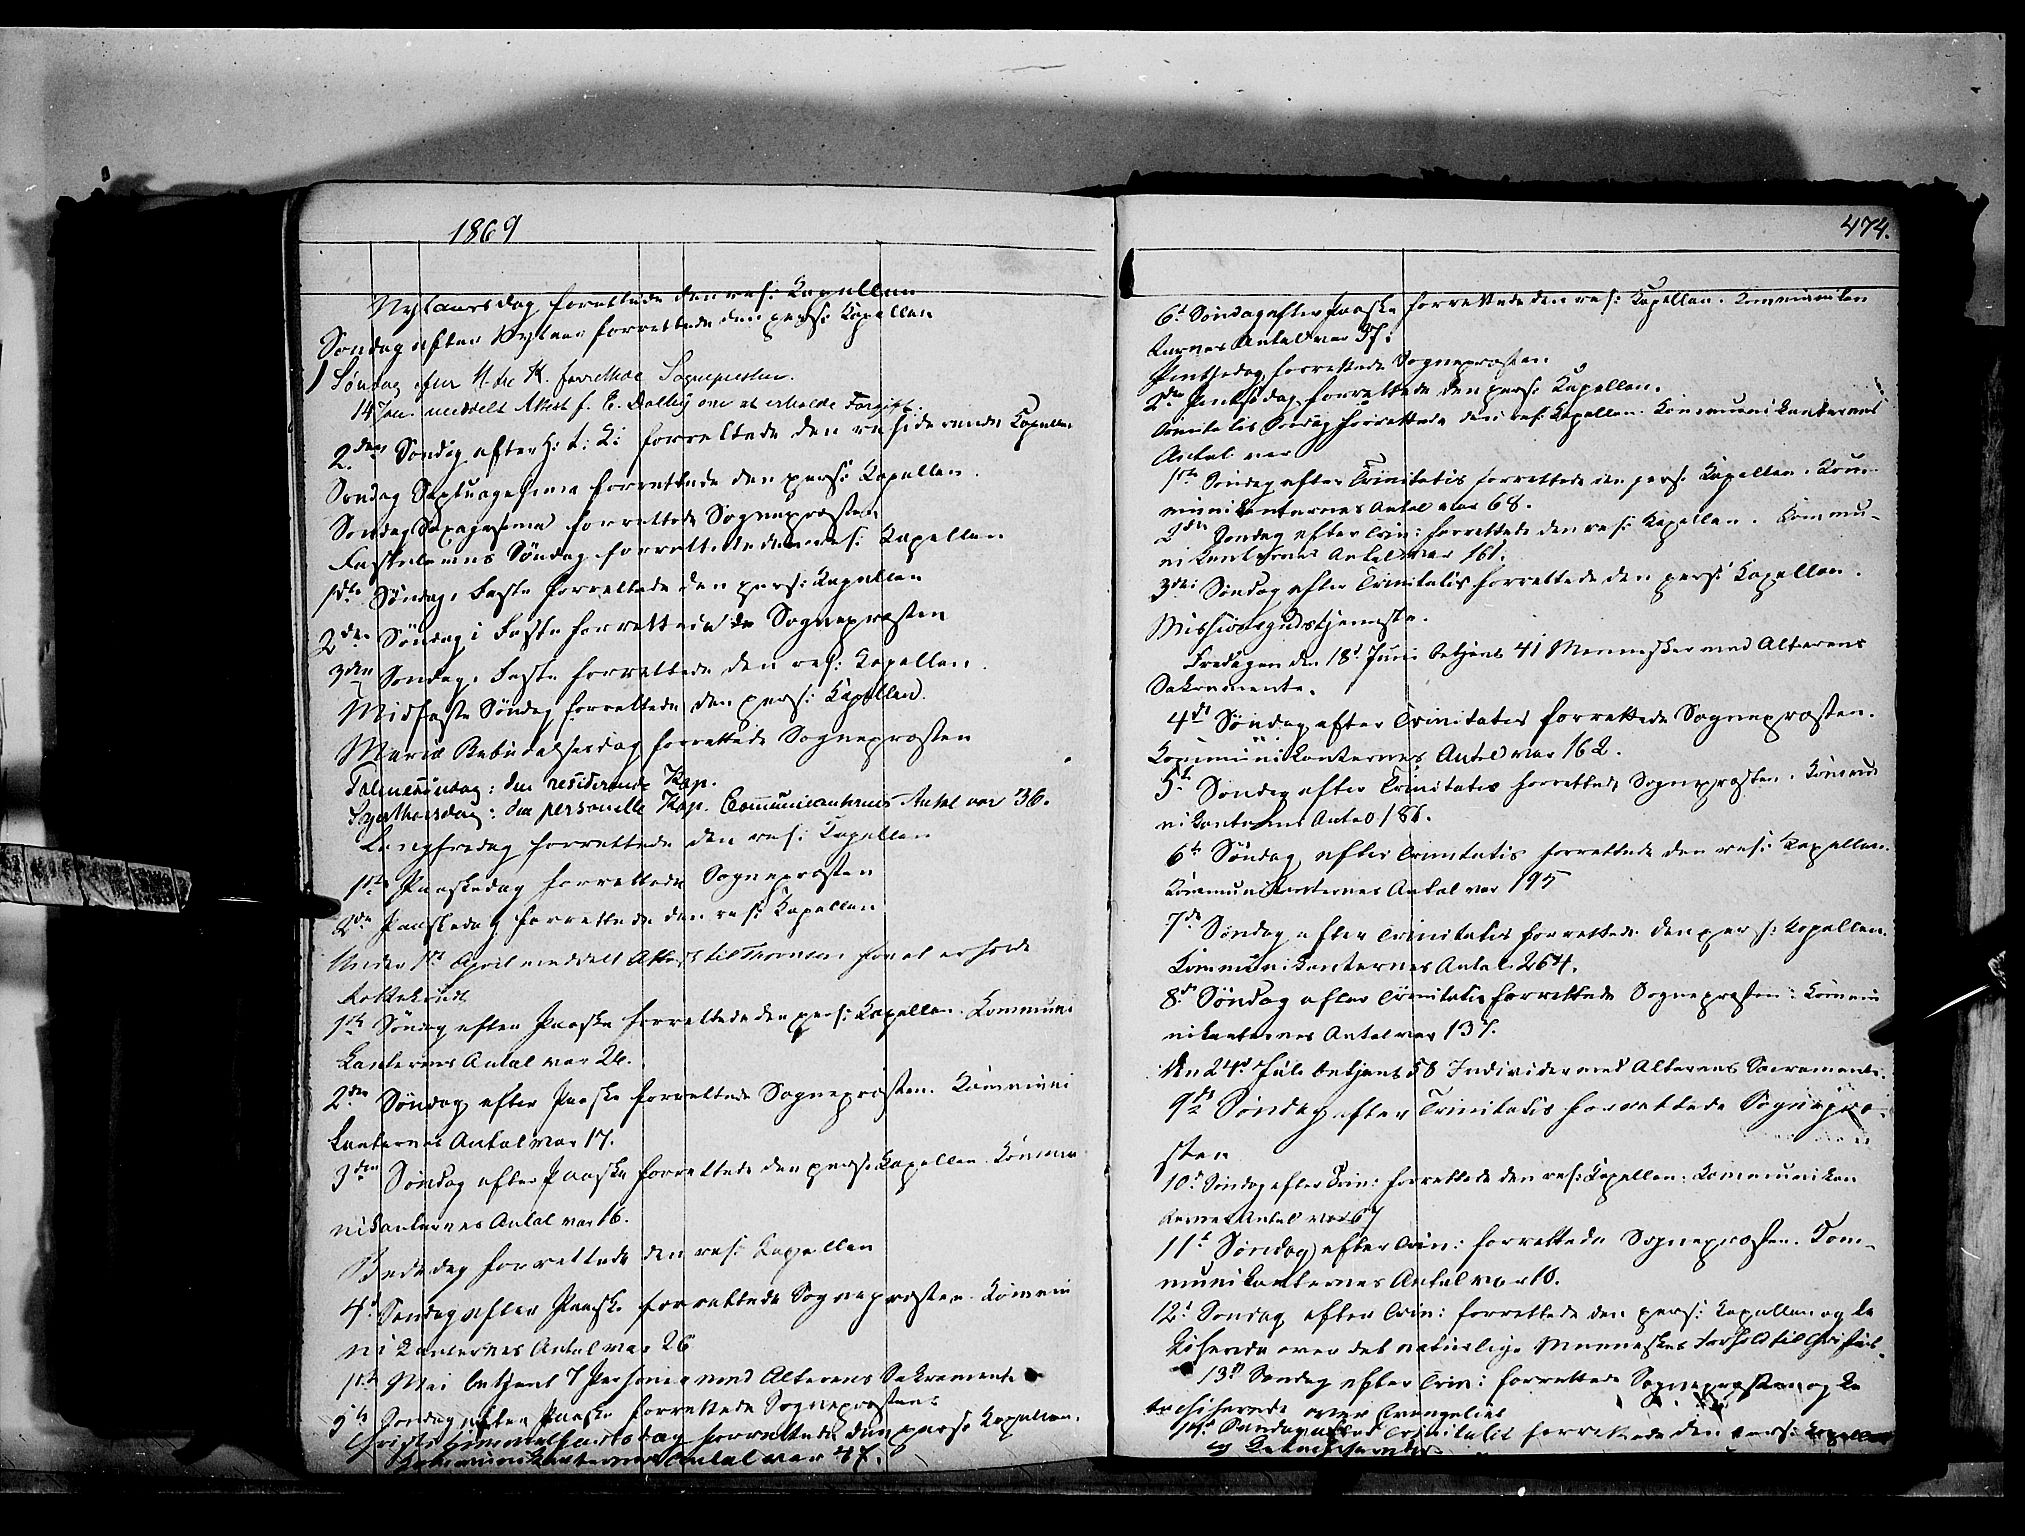 1869
Nytaarsdag forrettede den res: Kapellan
Søndag efter Nytaar forrettede den pers: Kapellan
1 Søndag efter H. tre K. forrettede Sognepresten.
14 Jan. meddelt Attest f. E. Dalby om at erholde
2den Søndag efter H: t: K: forrettede den residerende Kapellan
Søndag Septuagesima forrettede den pers: Kapellan.
Søndag Sexagesima forrettede Sognepræsten
Fastelavns Søndag forrettede den res: Kapellan
1ste Søndag i Faste forrettede den pers: Kapellan
2den Søndag i Faste forrettede Sognepræsten
3den Søndag i Faste forrettede den res: Kapellan.
Midfaste Søndag forrettede den pers: Kapellan.
Mariæ Bebudelsesdag forrettede Sognepræsten
Palmesøndag: den residerende Kap.
Skjærthorsdag: den personelle Kap. Communicanternes Antal var 36.
Langfredag forrettede den res: Kapellan
1ste Paaskedag forrettede Sognepræsten
2den Paaskedag forrettede den res: Kapellan
Under 1ste April meddelt Attest til Thomson for at erholde
1ste Søndag efter Paaske forrettede den pers: Kapellan. Kommuni
kanternes Antal var 26.
2den Søndag efter Paaske forrettede Sognepræsten. Kommuni
kanternes Antal var 17.
3den Søndag efter Paaske forrettede den pers: Kapellan. Kommu
nikanternes Antal var 16.
Bededag forrettede den res: Kapellan
4d Søndag efter Paaske forrettede Sognepræsten. Kommu
nikanternes Antal var 26
1ste Mai betjent 7 Personer med Alterens Sakramente
5te Søndag efter Paaske forrettede Sognepræsten
Christi Himmelfartsdag forrettede den pers: Kapellan.
Kommunikanternes Antal var 47.
474.
6t Søndag efter Paaske forrettede den res: Kapellan. Kommunikan
ternes Antal var 37.
Pintsedag forrettede Sognepræsten.
2den Pintsedag forrettede den pers: Kapellan.
Trinitatis Søndag forrettede den res: Kapellan. Kommunikanternes
Antal var
1ste Søndag efter Trinitatis forrettede den pers: Kapellan. Kom-
munikanternes Antal var 68.
2den Søndag efter Trin: forrettede den res: Kapellan. Kommu-
nikanternes Antal var 161.
3die Søndag efter Trinitatis forrettede den pers: Kapellan.
Missionsgudstjeneste.
Fredagen den 18d Juni betjent 41 Mennesker med Alterens
Sakramente.
4de Søndag efter Trinitatis forrettede Sognepræsten.
Kommunikanternes Antal var 162.
5t Søndag efter Trinitatis forrettede Sognepræsten. Kommu
nikanternes Antal 186.
6t Søndag efter Trinitatis forrettede den res: Kapellan.
Kommunikanternes Antal var 195
7de Søndag efter Trinitatis forrettede den pers: Kapellan.
Kommunikanternes Antal 264.
8d Søndag efter Trinitatis forrettede Sognepræsten: Kommu
nikanternes Antal var 137.
Den 24d Juli betjent 58 Individer med Alterens Sacramente.
9de Søndag efter Trinitatis forrettede Sognepræ-
sten
10d Søndag efter Trin: forrettede den res: Kapellan. Kommunikan
ternes Antal var 67
11t Søndag efter Trin: forrettede Sognepræsten. Kom-
munikanternes Antal var 10.
12t Søndag efter Trin: forrettede den pers: Kapellan og ka
kiserede over det naturlige Menneskes Forhold til Christus.
13d Søndag efter Trin: forrettede Sognepræsten og ka
techiserede over Evangeliet
14d Søndag efter Trinitatis forrettede den pers: Kapellan